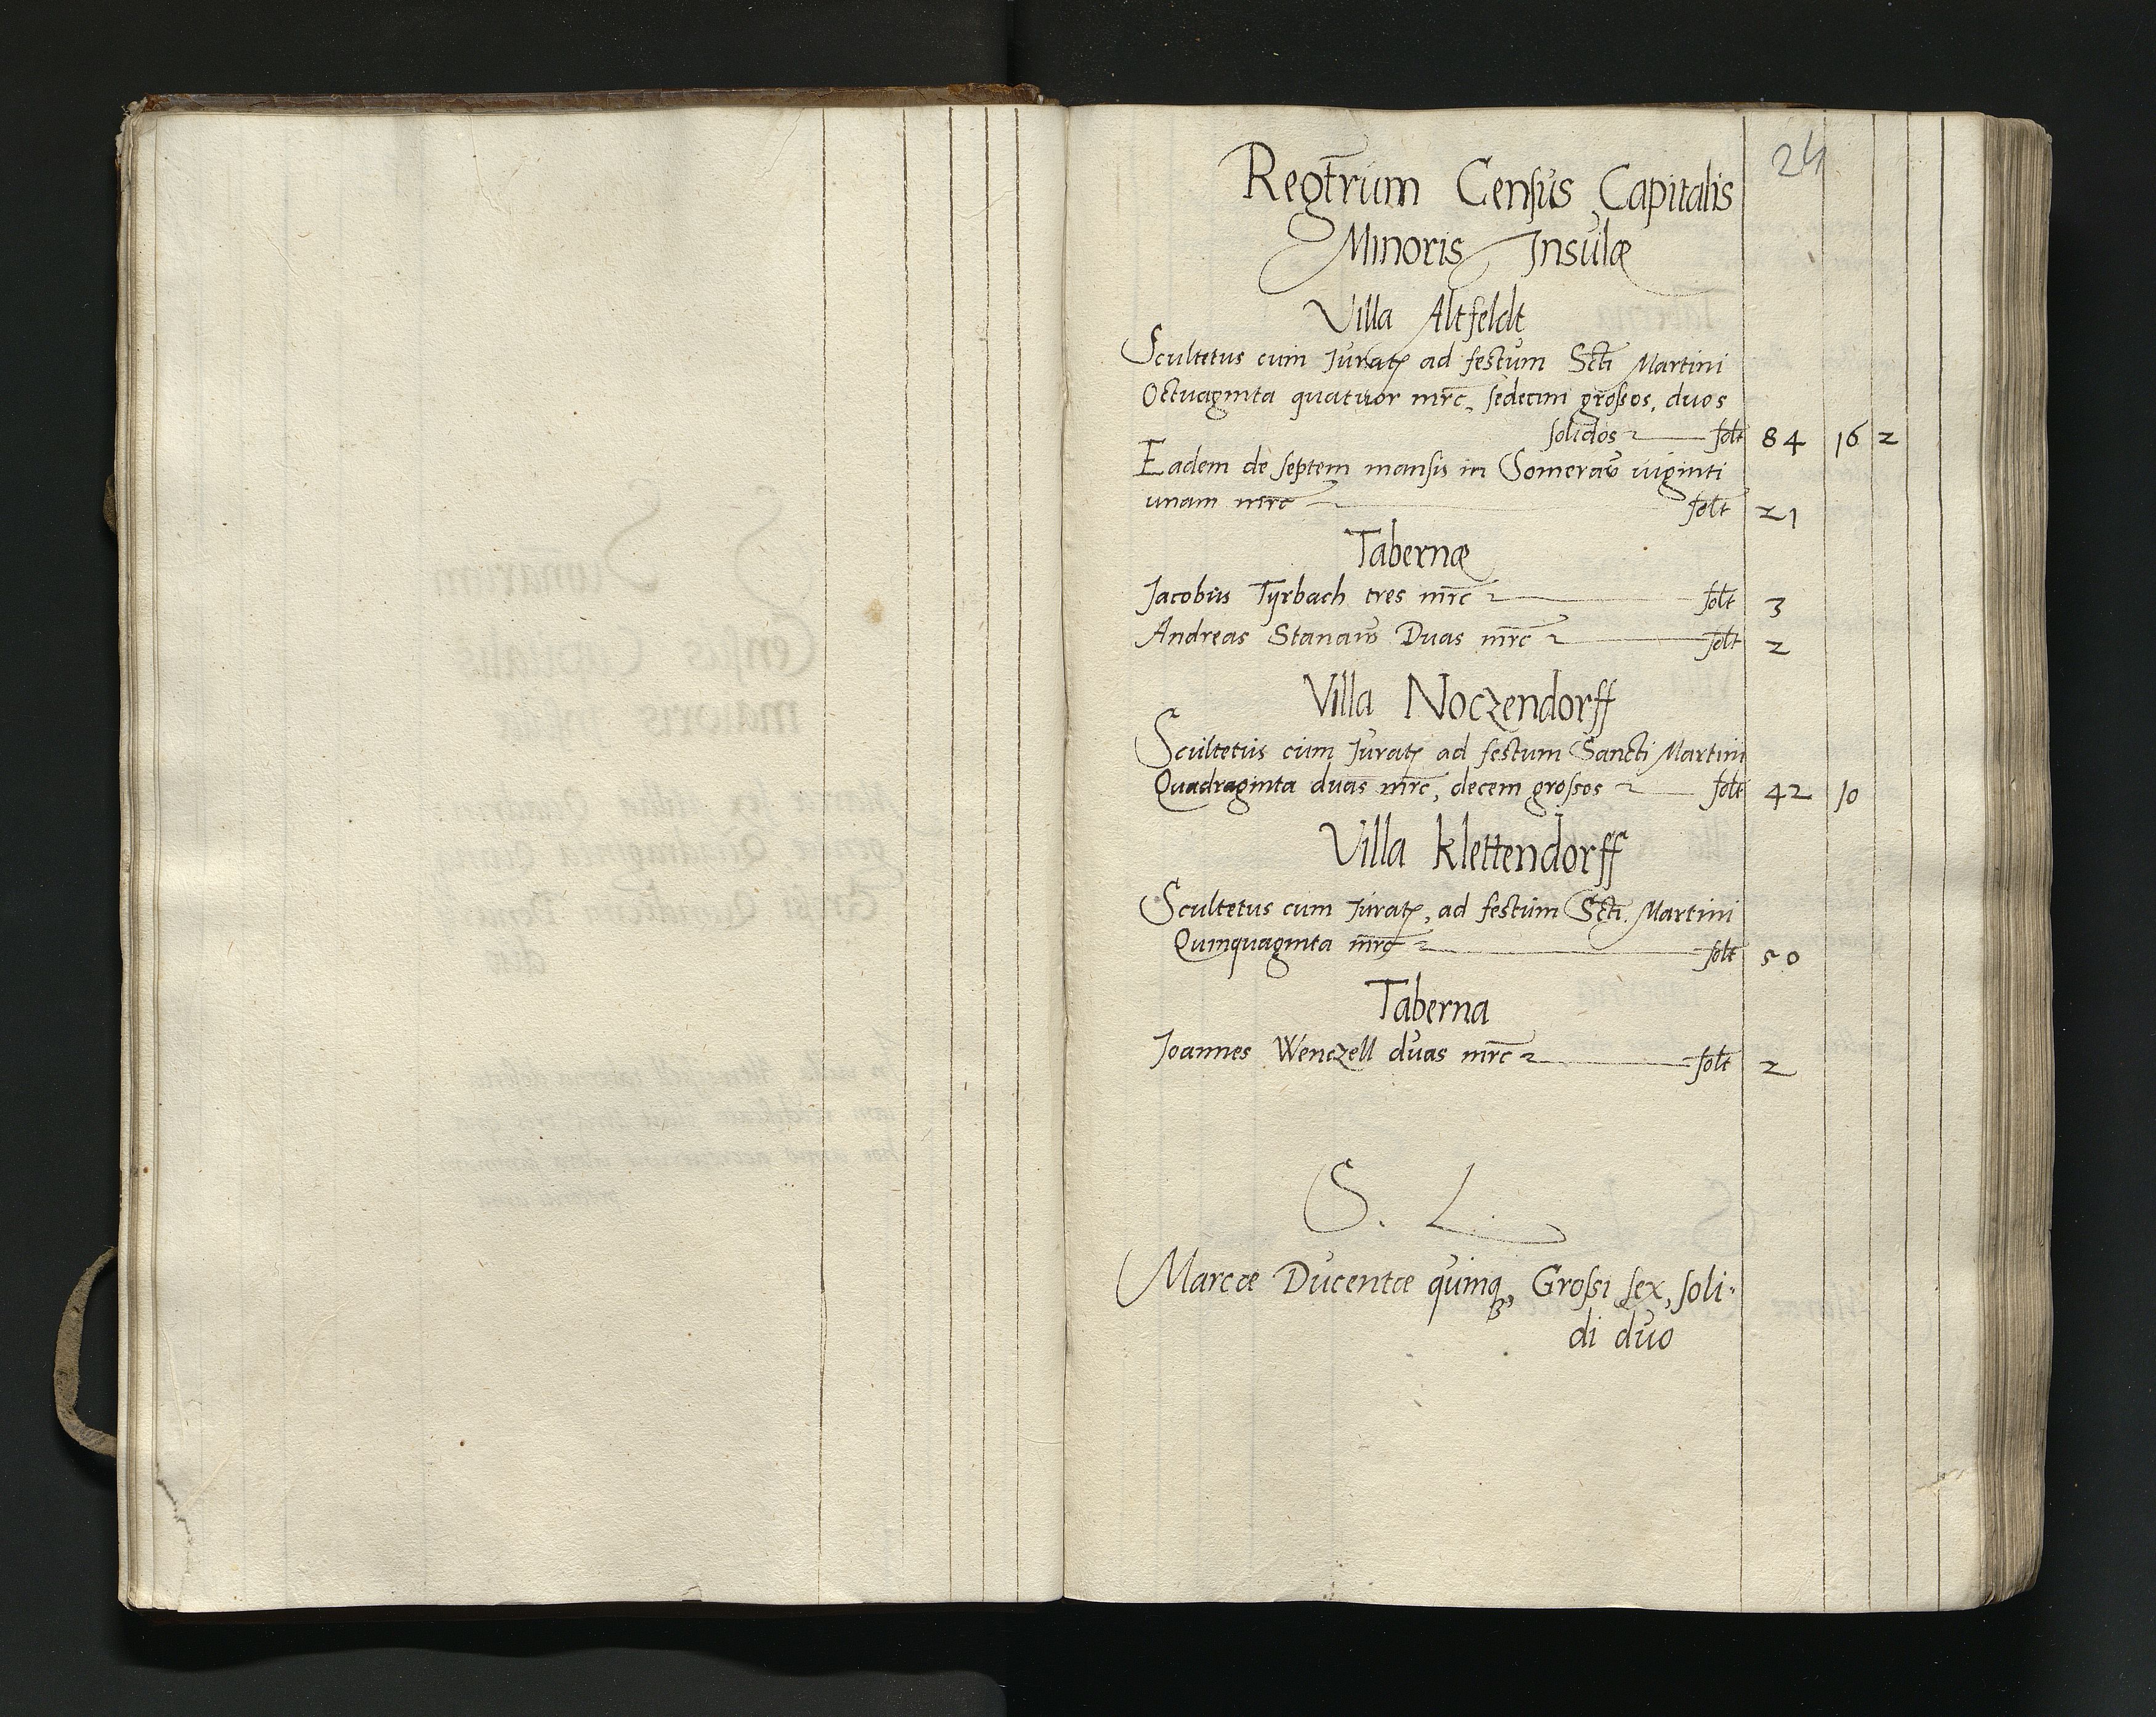 24
Regt̄rum Censŭs Capitalis
Minoris Insŭlæ
Villa Altfeldt
Scultetus cum Jŭratꝭ ad festŭm Sctī Martini
Octvaginta quatuor mrc̄, sedecim grossos, duos
solidos solt̄ 84 16 2
Eadem de septem mansis in Someraw viginti
unam mrc̄ solt̄ 21
Tabernæ
Jacobŭs Tyrbach tres mrc̄ solt̄ 3
Andreas Stanaw Duas mrc̄ solt̄ 2
Villa Noczendorff
Scŭltetŭs cŭm Jŭratꝭ ad festum Sancti Martini
Quadraginta duas mrc̄, decem grossos solt̄ 42 10
Villa Klettendorff
Scultetus cum Jŭratꝭ, ad festŭm Sctī. Martini
Quinquaginta mrc̄ solt̄ 50
Taberna
Joannes Wenczell dŭas mrc̄ solt̄ 2
S. L.
Marcæ Dŭcentæ qŭinqꝫ, Grossi sex, soli-
di dŭo